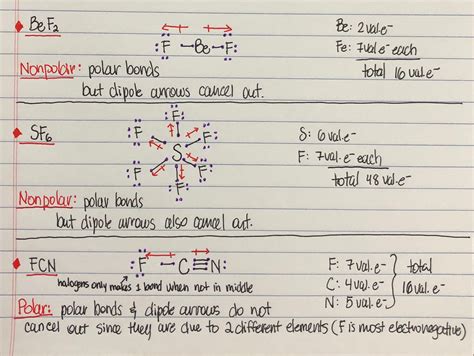 BeF₂
:F — Be — F:
Be: 2 val e⁻
Fe: 7 val e⁻ each
total 16 val. e⁻
Nonpolar: polar bonds
but dipole arrows cancel out.
SF₆
F F F S F F F
S: 6 val. e⁻
F: 7 val. e⁻ each
total 48 val. e⁻
Nonpolar: polar bonds
but dipole arrows also cancel out.
FCN
:F — C ≡ N:
halogens only makes 1 bond when not in middle
F: 7 val. e⁻
C: 4 val. e⁻
N: 5 val. e⁻
total
16 val. e⁻
Polar: polar bonds & dipole arrows do not
cancel out since they are due to 2 different elements (F is most electronegative)